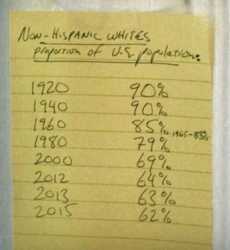 NON-HISPANIC WHITES
proportion of U.S. population:
1920 90%
1940 90%
1960 85% 1965-85%
1980 79%
2000 69%
2012 64%
2013 63%
2015 62%